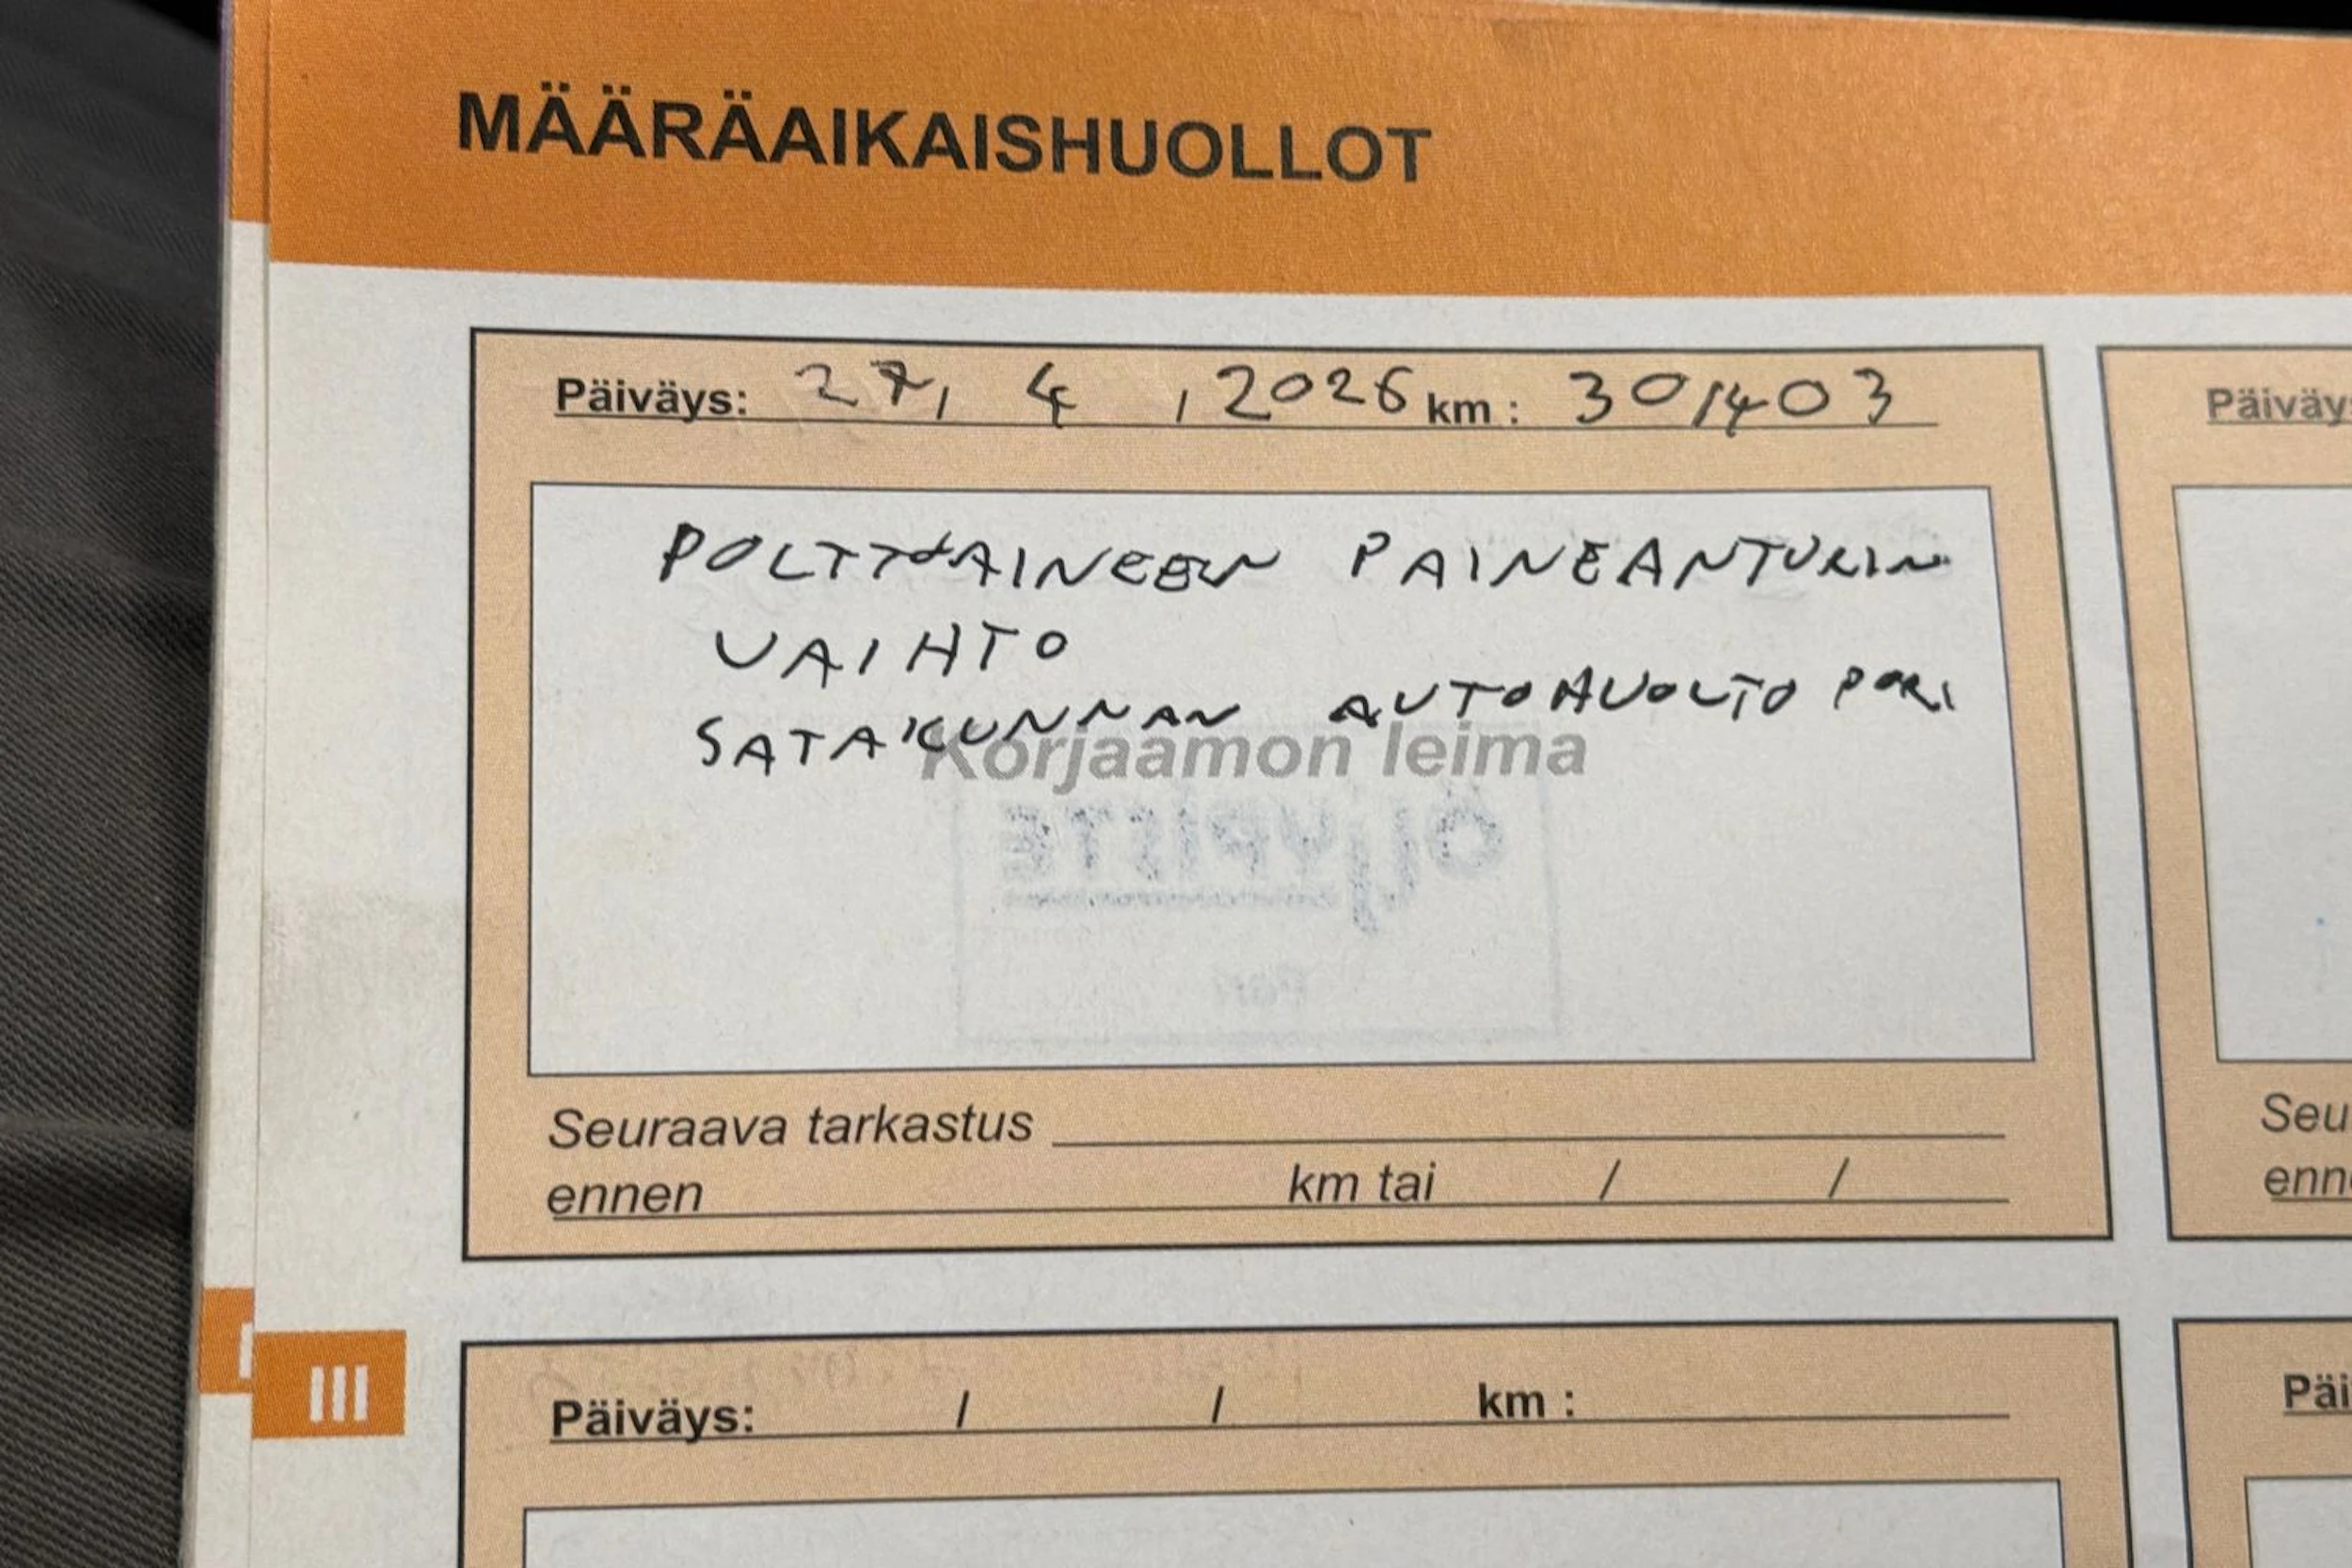 MÄÄRÄAIKAISHUOLLOT
Päiväys: 27, 4 , 2026 km : 301403
POLTTOAINEEN PAINEANTURIN
VAIHTO
SATAKUNNAN AUTOHUOLTO PORI
Korjaamon leima
ÖLJYPISTE
Pori
Seuraava tarkastus
ennen km tai / /
III
Päiväys: / / km :
Päiväy
Seu
enn
Päi